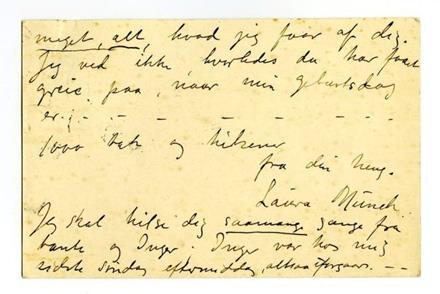 meget, alt, hvad jeg faar af dig.
Jeg ved ikke hvorledes du har faaet
greie paa, naar min geburtsdag
er. - - - - - - - -
1000 tak og hilsener
fra din heng.
Laura Munch.
Jeg skal hilse dig saamange gange fra
tante og Inger. Inger var hos mig
sidste søndag eftermiddag, altsaa forgaars. - -